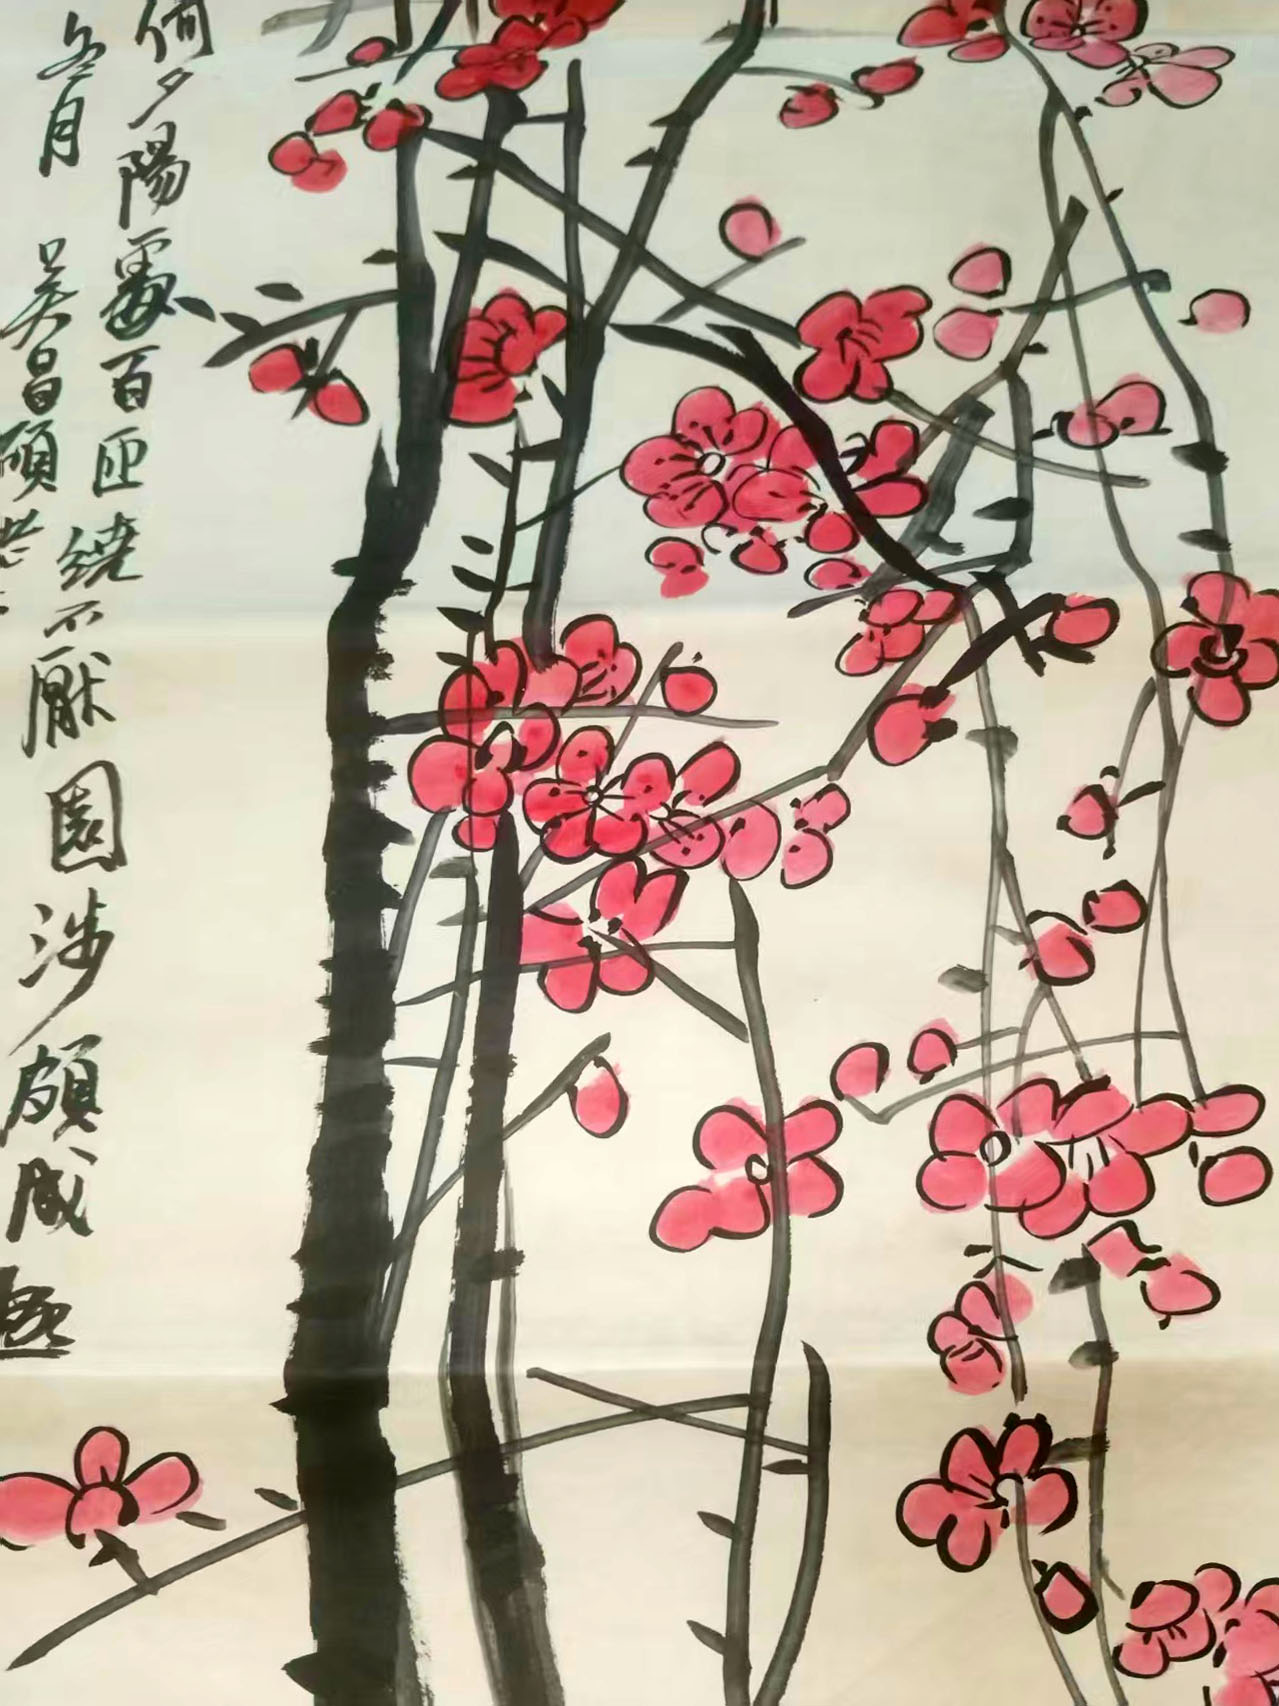 何夕陽處百匝繞不厭園涉頗成
冬月 吳昌碩